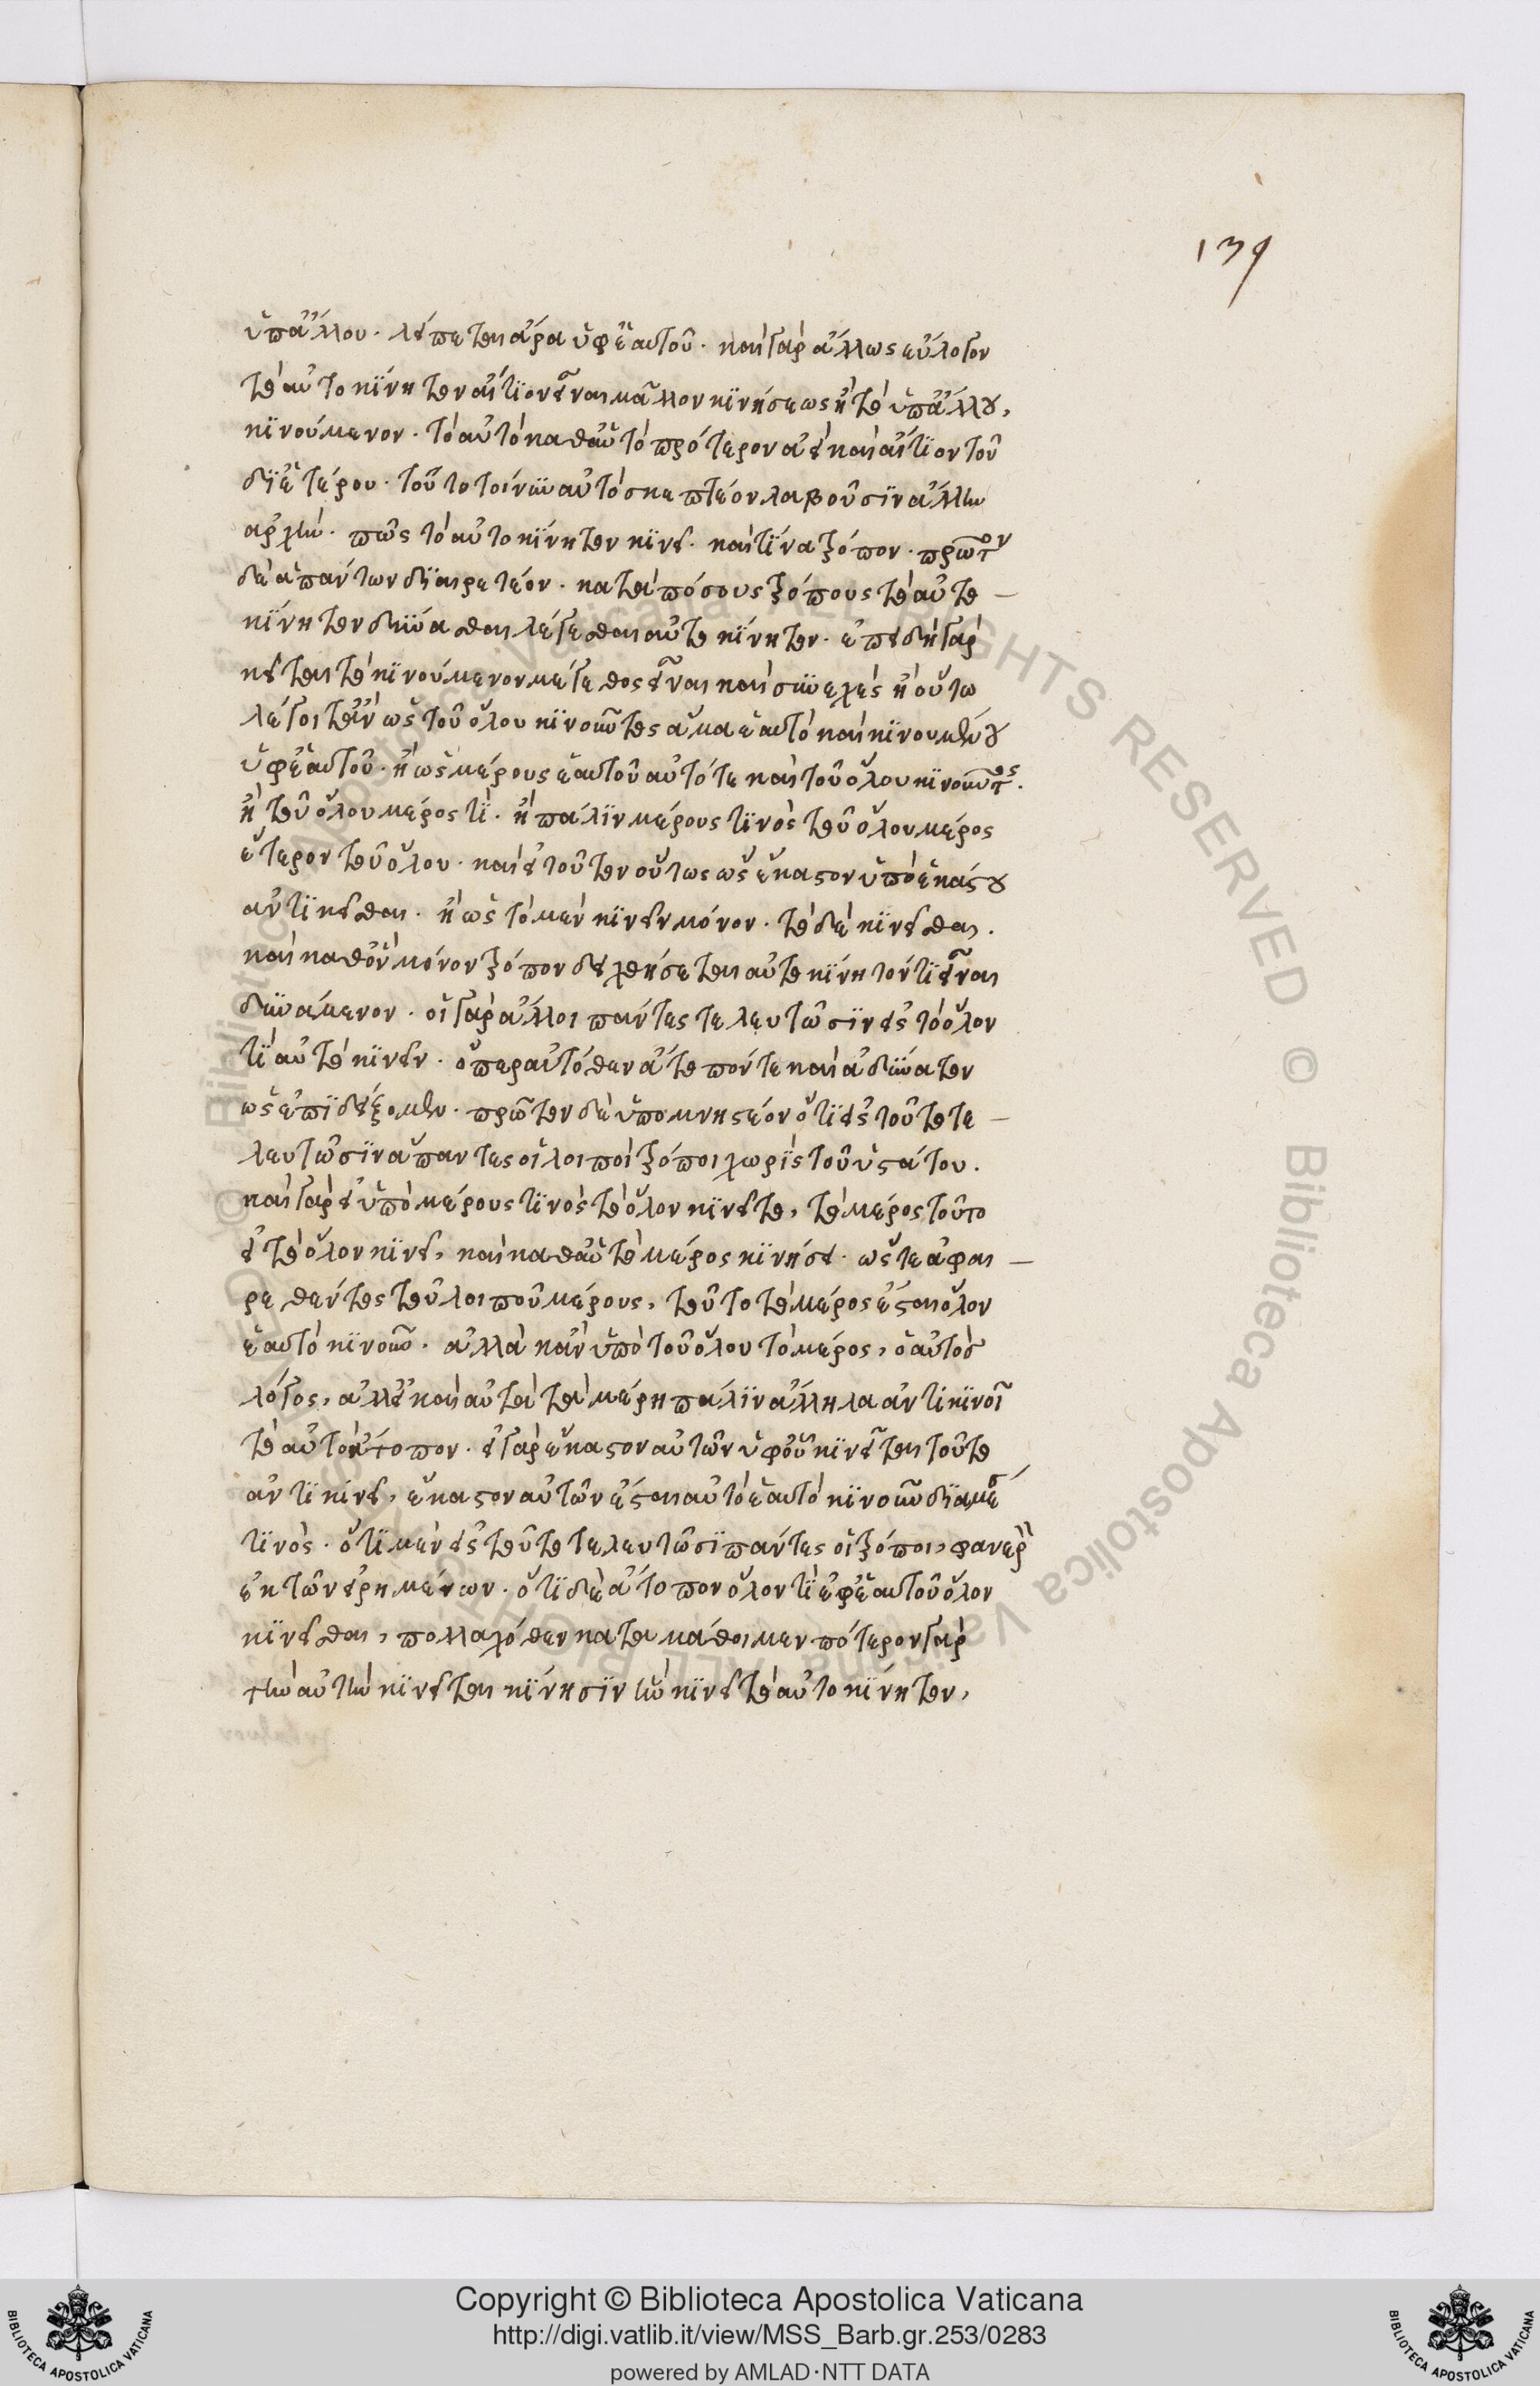 139
ὑπἄλλου. λείπεται ἄρα ὑφἑαυτοῦ. καὶ γὰρ ἄλλως εὔλογον
τὸ αὐτοκίνητον αἴτιον εἶναι μᾶλλον κινήσεως ἢ τὸ ὑπἄλλου,
κινούμενον. τὸ αὐτὸ καθαὑτὸ πρότερον ἀεὶ καὶ αἴτιον τοῦ
διἑτέρου. τοῦτο τοίνυν αὐτὸ σκεπτέον λαβοῦσιν ἄλλην
ἀρχήν. πῶς τὸ αὐτοκίνητον κινεῖ. καὶ τίνα τρόπον. πρῶτον
δὲ ἁπάντων διαιρετέον. κατὰ πόσους τρόπους τὸ αὐτο
κίνητον δύνασθαι λέγεσθαι αὐτοκίνητον. ἐπειδὴ γὰρ
κεῖται τὸ κινούμενον μέγεθος εἶναι καὶ συνεχές ἢ οὕτω
λέγοιτἂν ὡς τοῦ ὅλου κινοῦντος ἅμα ἑαυτὸ καὶ κινουμένου
ὑφἑαυτοῦ. ἢ ὡς μέρους ἑαυτοῦ αὐτό τε καὶ τοῦ ὅλου κινοῦντος.
ἢ τοῦ ὅλου μέρος τι. ἢ πάλιν μέρους τινὸς τοῦ ὅλου μέρος
ἕτερον τοῦ ὅλου. καὶ εἰ τοῦτον οὕτως ὡς ἕκαστον ὑπὸ ἑκάστου
ἀντικεῖσθαι. ἢ ὡς τὸ μὲν κινεῖν μόνον. τὸ δὲ κινεῖσθαι.
καὶ καθὃν μόνον τρόπον δειχθήσεται αὐτοκίνητόν τι εἶναι
δυνάμενον. οἱ γὰρ ἄλλοι πάντες τελευτῶσιν εἰς τὸ ὅλον
τι αὐτὸ κινεῖν. ὅπερ αὐτόθεν ἄτοπόν τε καὶ ἀδύνατον
ὡς ἐπιδείξομεν. πρῶτον δὲ ὑπομνηστέον ὅτι εἰς τοῦτο τε
λευτῶσιν ἅπαντες οἱ λοιποὶ τρόποι χωρὶς τοῦ ὑστάτου.
καὶ γὰρ εἰ ὑπὸ μέρους τινὸς τὸ ὅλον κινεῖτο, τὸ μέρος τοῦτο
εἰ τὸ ὅλον κινεῖ, καὶ καθαὑτὸ μέρος κινήσει. ὥστε ἀφαι
ρεθέντος τοῦ λοιποῦ μέρους, τοῦτο τὸ μέρος ἔσται ὅλον
ἑαυτὸ κινοῦν. ἀλλὰ κἂν ὑπὸ τοῦ ὅλου τὸ μέρος, ὁ αὐτὸς
λόγος, ἀλλεἰ καὶ αὐτὰ τὰ μέρη πάλιν ἄλληλα ἀντικινοῖ
τὸ αὐτὸ ἄτοπον. εἰ γὰρ ἕκαστον αὐτῶν ὑφοὗ κινεῖται τοῦτο
ἀντικινεῖ, ἕκαστον αὐτῶν ἔσται αὐτὸ ἑαυτὸ κινοῦν διὰ μέσου
τινός. ὅτι μὲν εἰς τοῦτο τελευτῶσι πάντες οἱ τρόποι, φανερὸν
ἐκ τῶν εἰρημένων. ὅτι δὲ ἄτοπον ὅλον τι ἐφἑαυτοῦ ὅλον
κινεῖσθαι, πολλαχόθεν καταμάθοιμεν πότερον γὰρ
τὴν αὐτὴν κινεῖται κίνησιν ἣν κινεῖ τὸ αὐτοκίνητον,
Copyright © Biblioteca Apostolica Vaticana
http://digi.vatlib.it/view/MSS_Barb.gr.253/0283
powered by AMLAD·NTT DATA